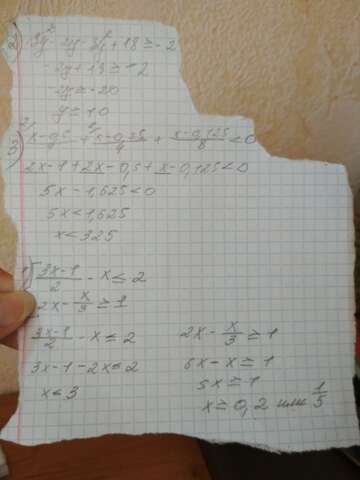 2) 3y² - 2y - 3y² + 18 ≥ -2
-2y + 18 ≥ -2
-2y ≥ -20
y ≥ 10
3) x-0,5/2 + x-0,25/4 + x-0,125/8 < 0
2x - 1 + 2x - 0,5 + x - 0,125 < 0
5x - 1,625 < 0
5x < 1,625
x < 325
1) 3x-1/2 - x ≤ 2
2x - x/3 ≥ 1
3x-1/2 - x ≤ 2
3x - 1 - 2x ≤ 2
x ≤ 3
2x - x/3 ≥ 1
6x - x ≥ 1
5x ≥ 1
x ≥ 0,2 или 1/5